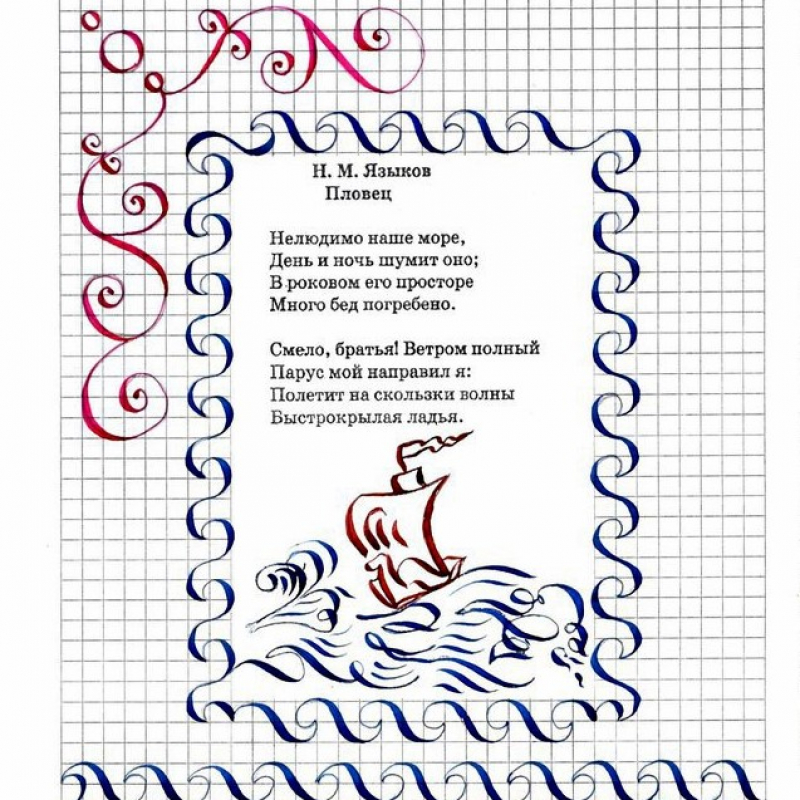 Н. М. Языков
Пловец
Нелюдимо наше море,
День и ночь шумит оно;
В роковом его просторе
Много бед погребено.
Смело, братья! Ветром полный
Парус мой направил я:
Полетит на скользки волны
Быстрокрылая ладья.